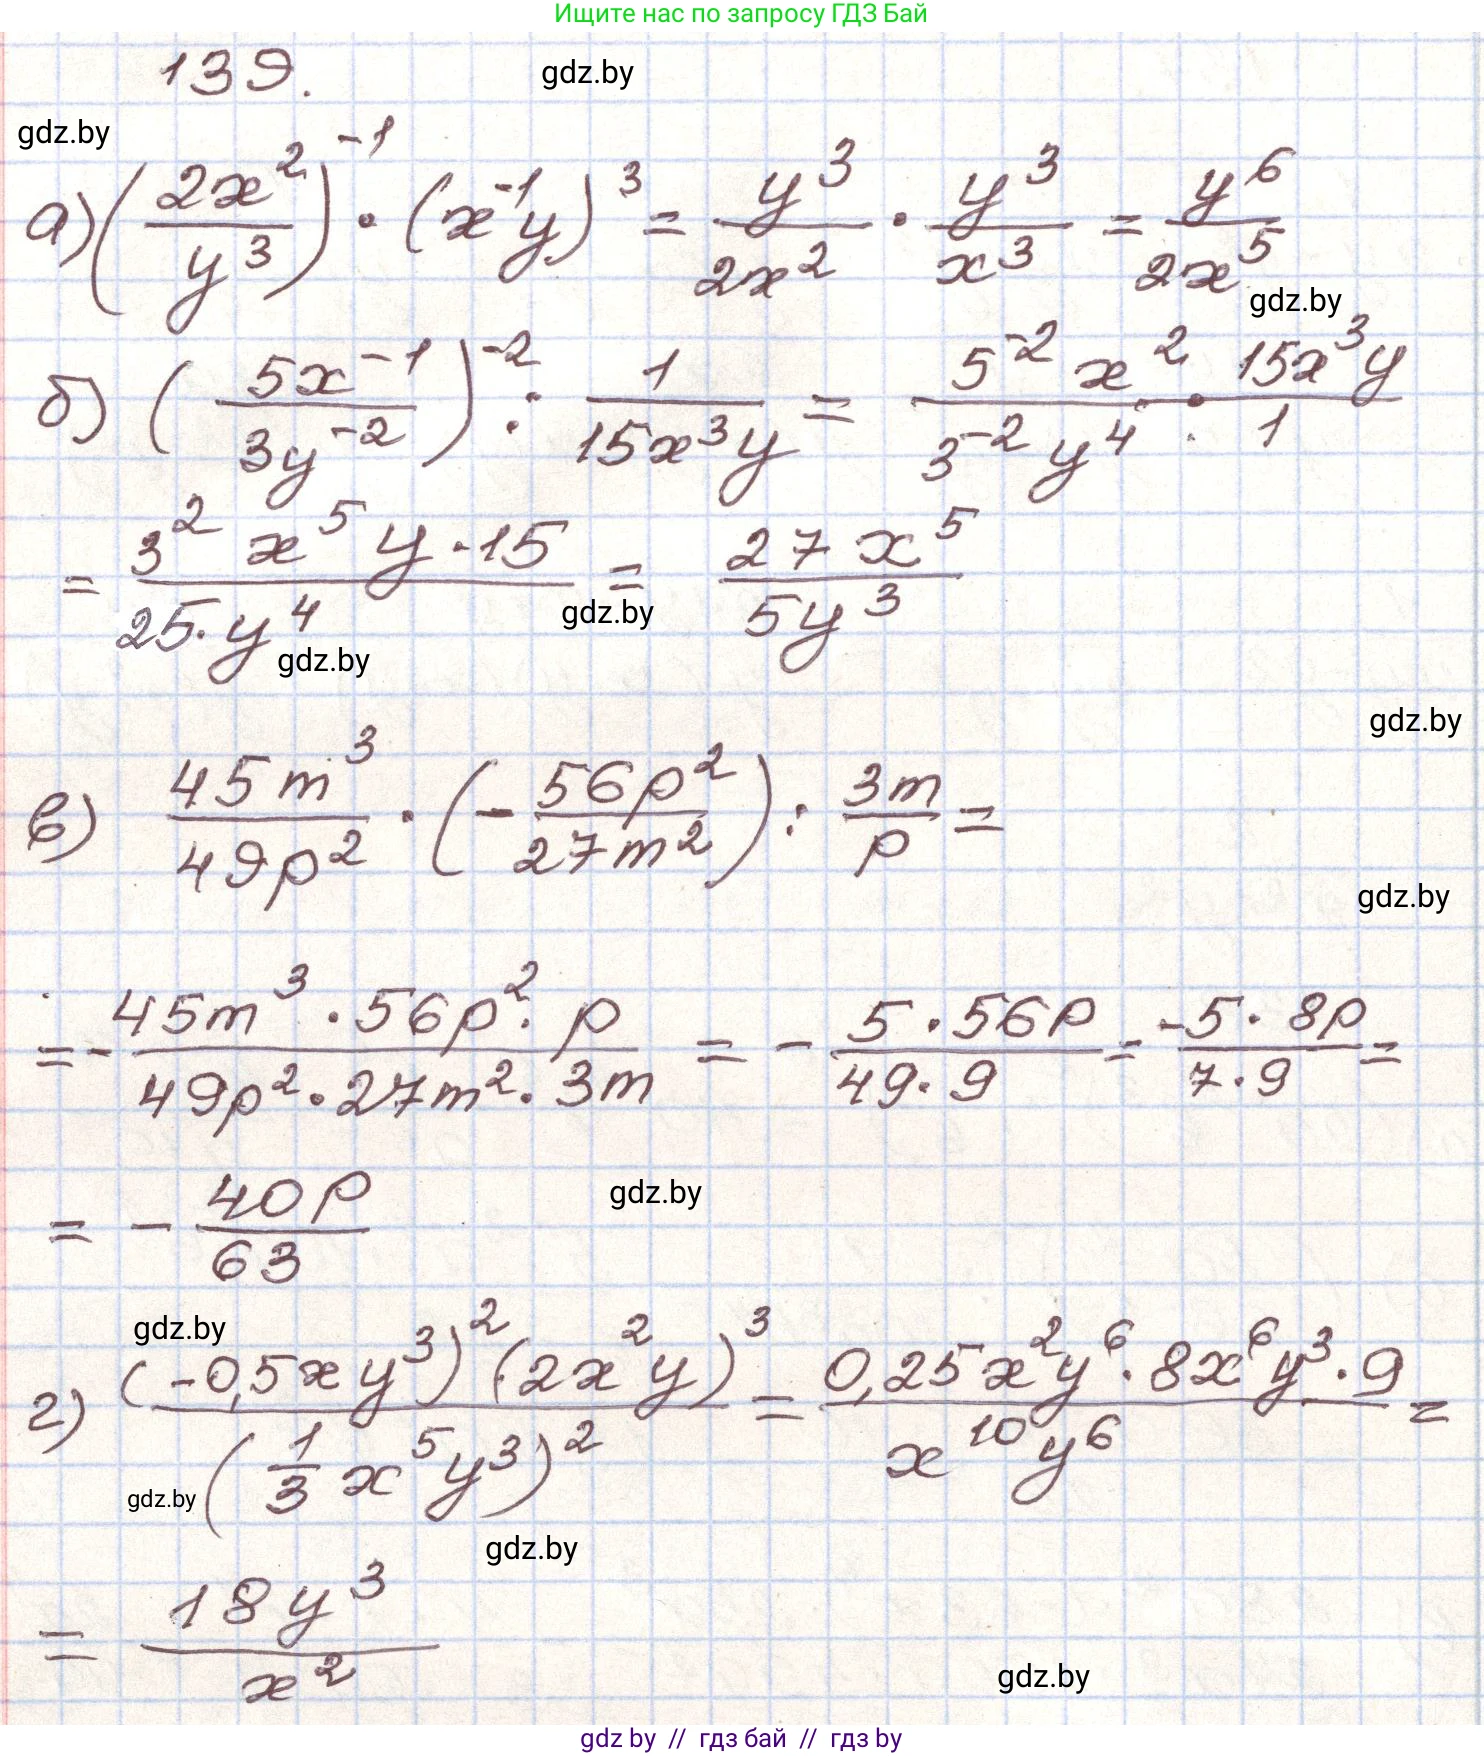 Ищите нас по запросу ГДЗ Бай
139.
gdz.by
gdz.by
а) (2x²/y³)⁻¹ · (x⁻¹y)³ = y³/2x² · y³/x³ = y⁶/2x⁵
gdz.by
б) (5x⁻¹/3y⁻²)⁻² : 1/15x³y = 5⁻²x²/3⁻²y⁴ · 15x³y/1
= 3²x⁵y·15/25·y⁴ = 27x⁵/5y³
gdz.by
gdz.by
gdz.by
в) 45m³/49p² · (-56p²/27m²) : 3m/p =
gdz.by
= - 45m³·56p²·p/49p²·27m²·3m = - 5·56p/49·9 = -5·8p/7·9 =
= - 40p/63
gdz.by
gdz.by
г) (-0,5xy³)²(2x²y)³/(1/3 x⁵y³)² = 0,25x²y⁶·8x⁶y³·9/x¹⁰y⁶ =
gdz.by
gdz.by
= 18y³/x²
gdz.by
gdz by // гдз бай // гдз by